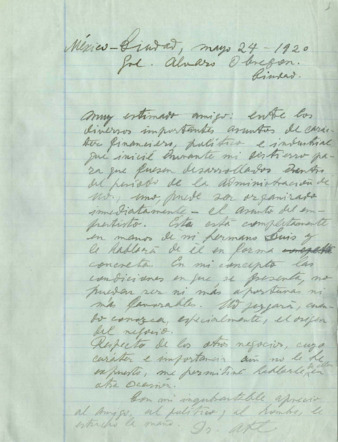 México-Ciudad, mayo 24-1920
Gral. Alvaro Obregon.
Ciudad.
Muy estimado amigo: entre los
diversos importantes asuntos de carac-
ter financiero, político e industrial
que inicié durante mi destierro pa-
ra que fuesen desarrollados dentro
del periodo de la administración de
Ud., uno, puede ser organizado
inmediatamente - el asunto del em-
préstito. Este está completamente
en manos de mi hermano Luis y
le hablará de él en forma
concreta. En mi concepto las
condiciones en que se presenta, no
pueden ser ni más oportunas ni
más favorables. Ud. juzgará, cuan-
do conozca, especialmente, el origen
del negocio.
Respecto de los otros negocios, cuyo
carácter e importancia aún no le he
expuesto, me permitiré hablarle en
otra ocasión.
Con mi inquebrantable aprecio
al amigo, al político y al hombre, le
estrecho la mano.